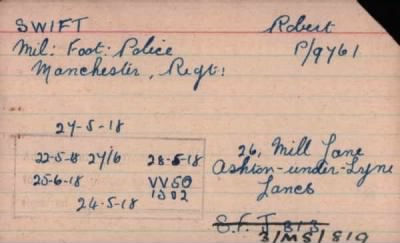 SWIFT Robert
Mil: Foot: Police P/9761
Manchester, Regt:
24-5-18
22-5-18 27/6 28-5-18
25-6-18 VV50
24-5-18 1502
26, Mill Lane
Ashton-under-Lyne
Lancs
3/MS/819